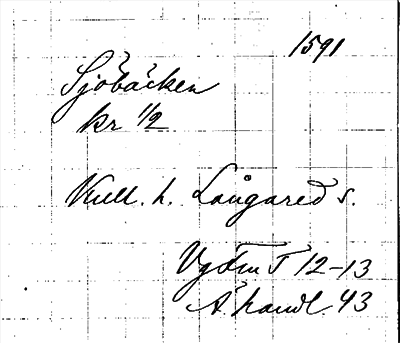 1591
Sjöbäcken
kr 1/2
Kull. h. Långared s.
Vg Fm T 12-13
Å handl. 43